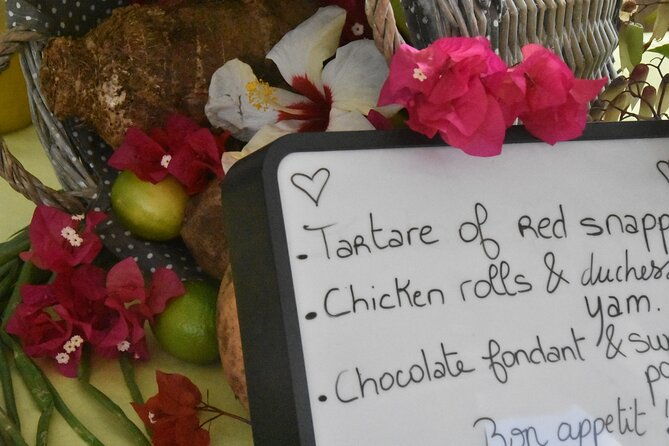 . Tartare of Red snapp
. Chicken rolls & duches
yam.
. Chocolate fondant & sw
po
Bon appetit !